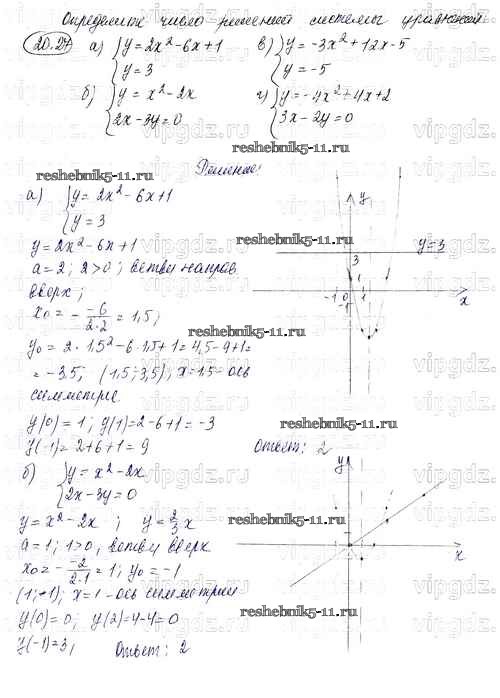 Определите число решений системы уравнений
20.27 а) { y = 2x² - 6x + 1 в) { y = -3x² + 12x - 5
y = 3 y = -5
б) { y = x² - 2x г) { y = -4x² + 4x + 2
2x - 3y = 0 3x - 2y = 0
Решение:
reshebnik5-11.ru
а) { y = 2x² - 6x + 1
y = 3
y = 2x² - 6x + 1
a = 2; 2 > 0; ветви направ
вверх;
x₀ = - -6/2·2 = 1,5;
y₀ = 2·1,5² - 6·1,5 + 1 = 4,5 - 9 + 1 =
= -3,5; (1,5; -3,5); x = 1,5 - ось
симметрие
y(0) = 1; y(1) = 2 - 6 + 1 = -3
y(-1) = 2 + 6 + 1 = 9
y
reshebnik5-11.ru
y = 3
3
1
-1 0 1 x
-1
reshebnik5-11.ru
reshebnik5-11.ru
Ответ: 2
б) { y = x² - 2x
2x - 3y = 0
y = x² - 2x; y = 2/3 x
a = 1; 1 > 0, ветви вверх
x₀ = - -2/2·1 = 1; y₀ = -1
(1; -1); x = 1 - ось симметрии
y(0) = 0; y(2) = 4 - 4 = 0
y(-1) = 3;
Ответ: 2
y
reshebnik5-11.ru
x
reshebnik5-11.ru
vipgdz.ru